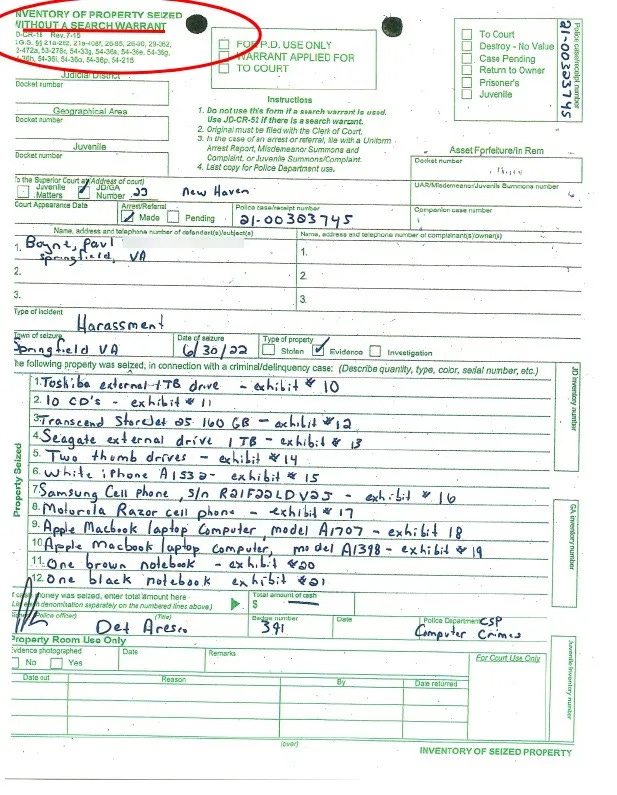 INVENTORY OF PROPERTY SEIZED
WITHOUT A SEARCH WARRANT
JD-CR-18 Rev. 7-15
FOR P.D. USE ONLY
WARRANT APPLIED FOR
TO COURT
To Court
Destroy - No Value
Case Pending
Return to Owner
Prisoner's
Juvenile
Police case/receipt number
21-00383745
Judicial District
Docket number
Geographical Area
Docket number
Juvenile
Docket number
Instructions
1. Do not use this form if a search warrant is used.
Use JD-CR-52 if there is a search warrant.
2. Original must be filed with the Clerk of Court.
3. In the case of an arrest or referral, file with a Uniform
Arrest Report, Misdemeanor Summons and
Complaint, or Juvenile Summons/Complaint.
4. Last copy for Police Department use.
Asset Forfeiture/In Rem
Docket number
UAR/Misdemeanor/Juvenile Summons number
To the Superior Court at (Address of court)
Juvenile Matters
JD/GA Number 23 New Haven
Court Appearance Date
Arrest/Referral
Made
Pending
Police case/receipt number
21-00383745
Companion case number
Name, address and telephone number of defendant(s)/subject(s)
Name, address and telephone number of complainant(s)/owner(s)
1. Boyne, Paul
Springfield, VA
2.
3.
1.
2.
3.
Type of incident
Harassment
Town of seizure
Springfield VA
Date of seizure
6/30/22
Type of property
Stolen
Evidence
Investigation
The following property was seized, in connection with a criminal/delinquency case: (Describe quantity, type, color, serial number, etc.)
Property Seized
1. Toshiba external 1TB drive - exhibit # 10
2. 10 CD's - exhibit # 11
3. Transcend StoreJet 25 160 GB - exhibit # 12
4. Seagate external drive 1 TB - exhibit # 13
5. Two thumb drives - exhibit # 14
6. White iPhone A1532 - exhibit # 15
7. Samsung Cell phone, s/n R21F22LDV2J - exhibit # 16
8. Motorola Razor cell phone - exhibit # 17
9. Apple Macbook laptop Computer, model A1707 - exhibit 18
10. Apple Macbook laptop computer, model A1398 - exhibit # 19
11. One brown notebook - exhibit #20
12. One black notebook exhibit #21
JD inventory number
GA inventory number
Juvenile inventory number
If cash/money was seized, enter total amount here
(List each denomination separately on the numbered lines above.)
Total amount of cash
$
Signed (Police officer)
(Title)
Det Aresco
Badge number
391
Date
Police Department
CSP
Computer Crimes
Property Room Use Only
Evidence photographed
No
Yes
Date
Remarks
For Court Use Only
Date out
Reason
By
Date returned
(over)
INVENTORY OF SEIZED PROPERTY